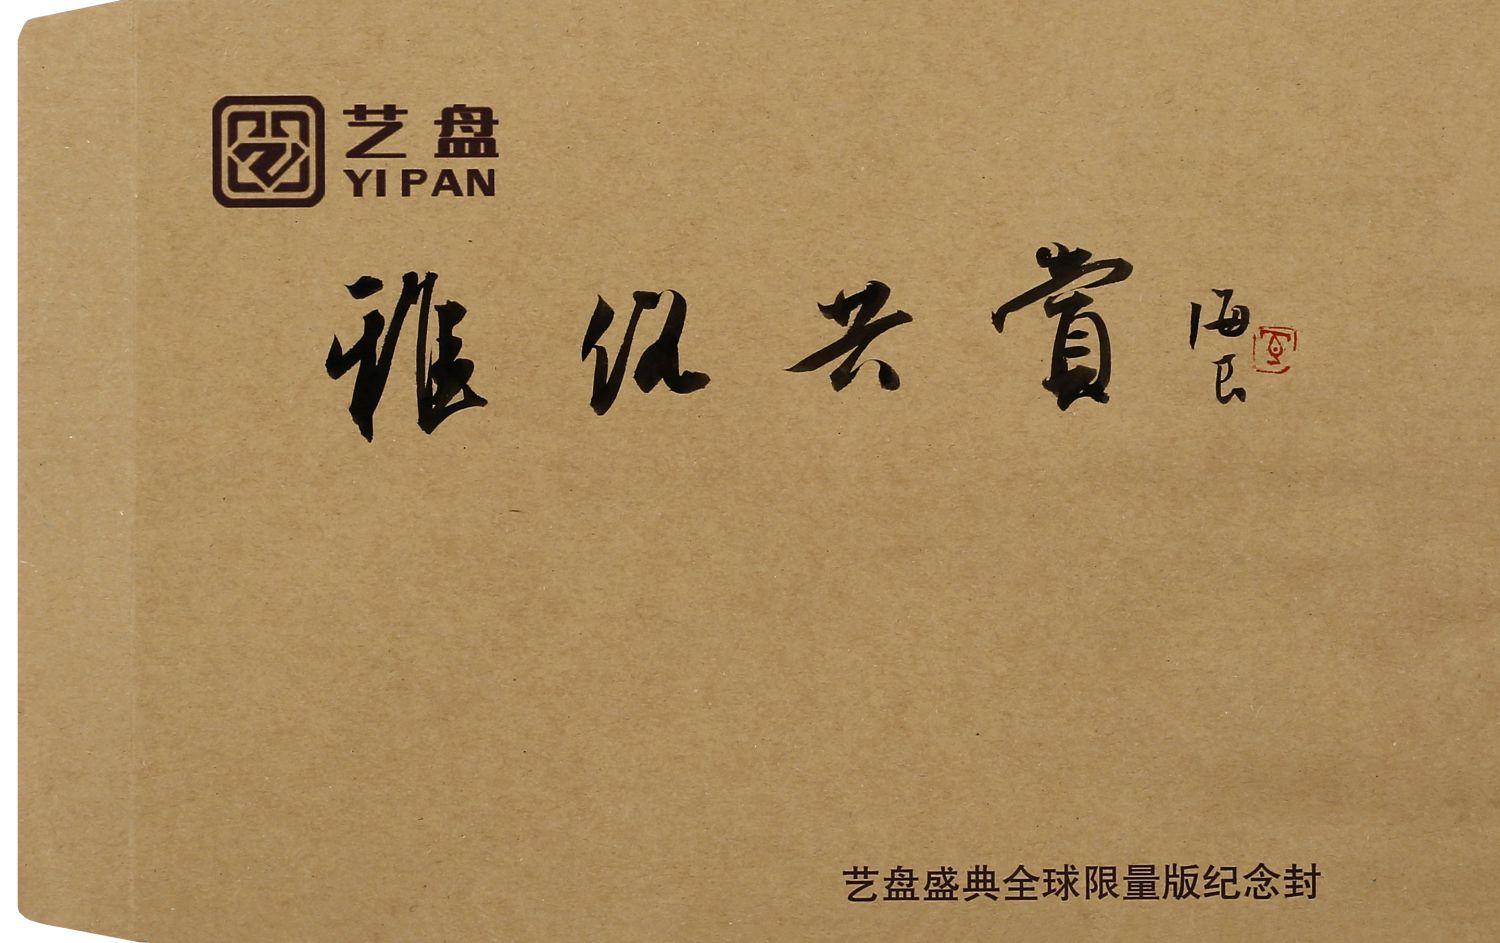 艺盘
YI PAN
雅俗共赏
艺盘盛典全球限量版纪念封